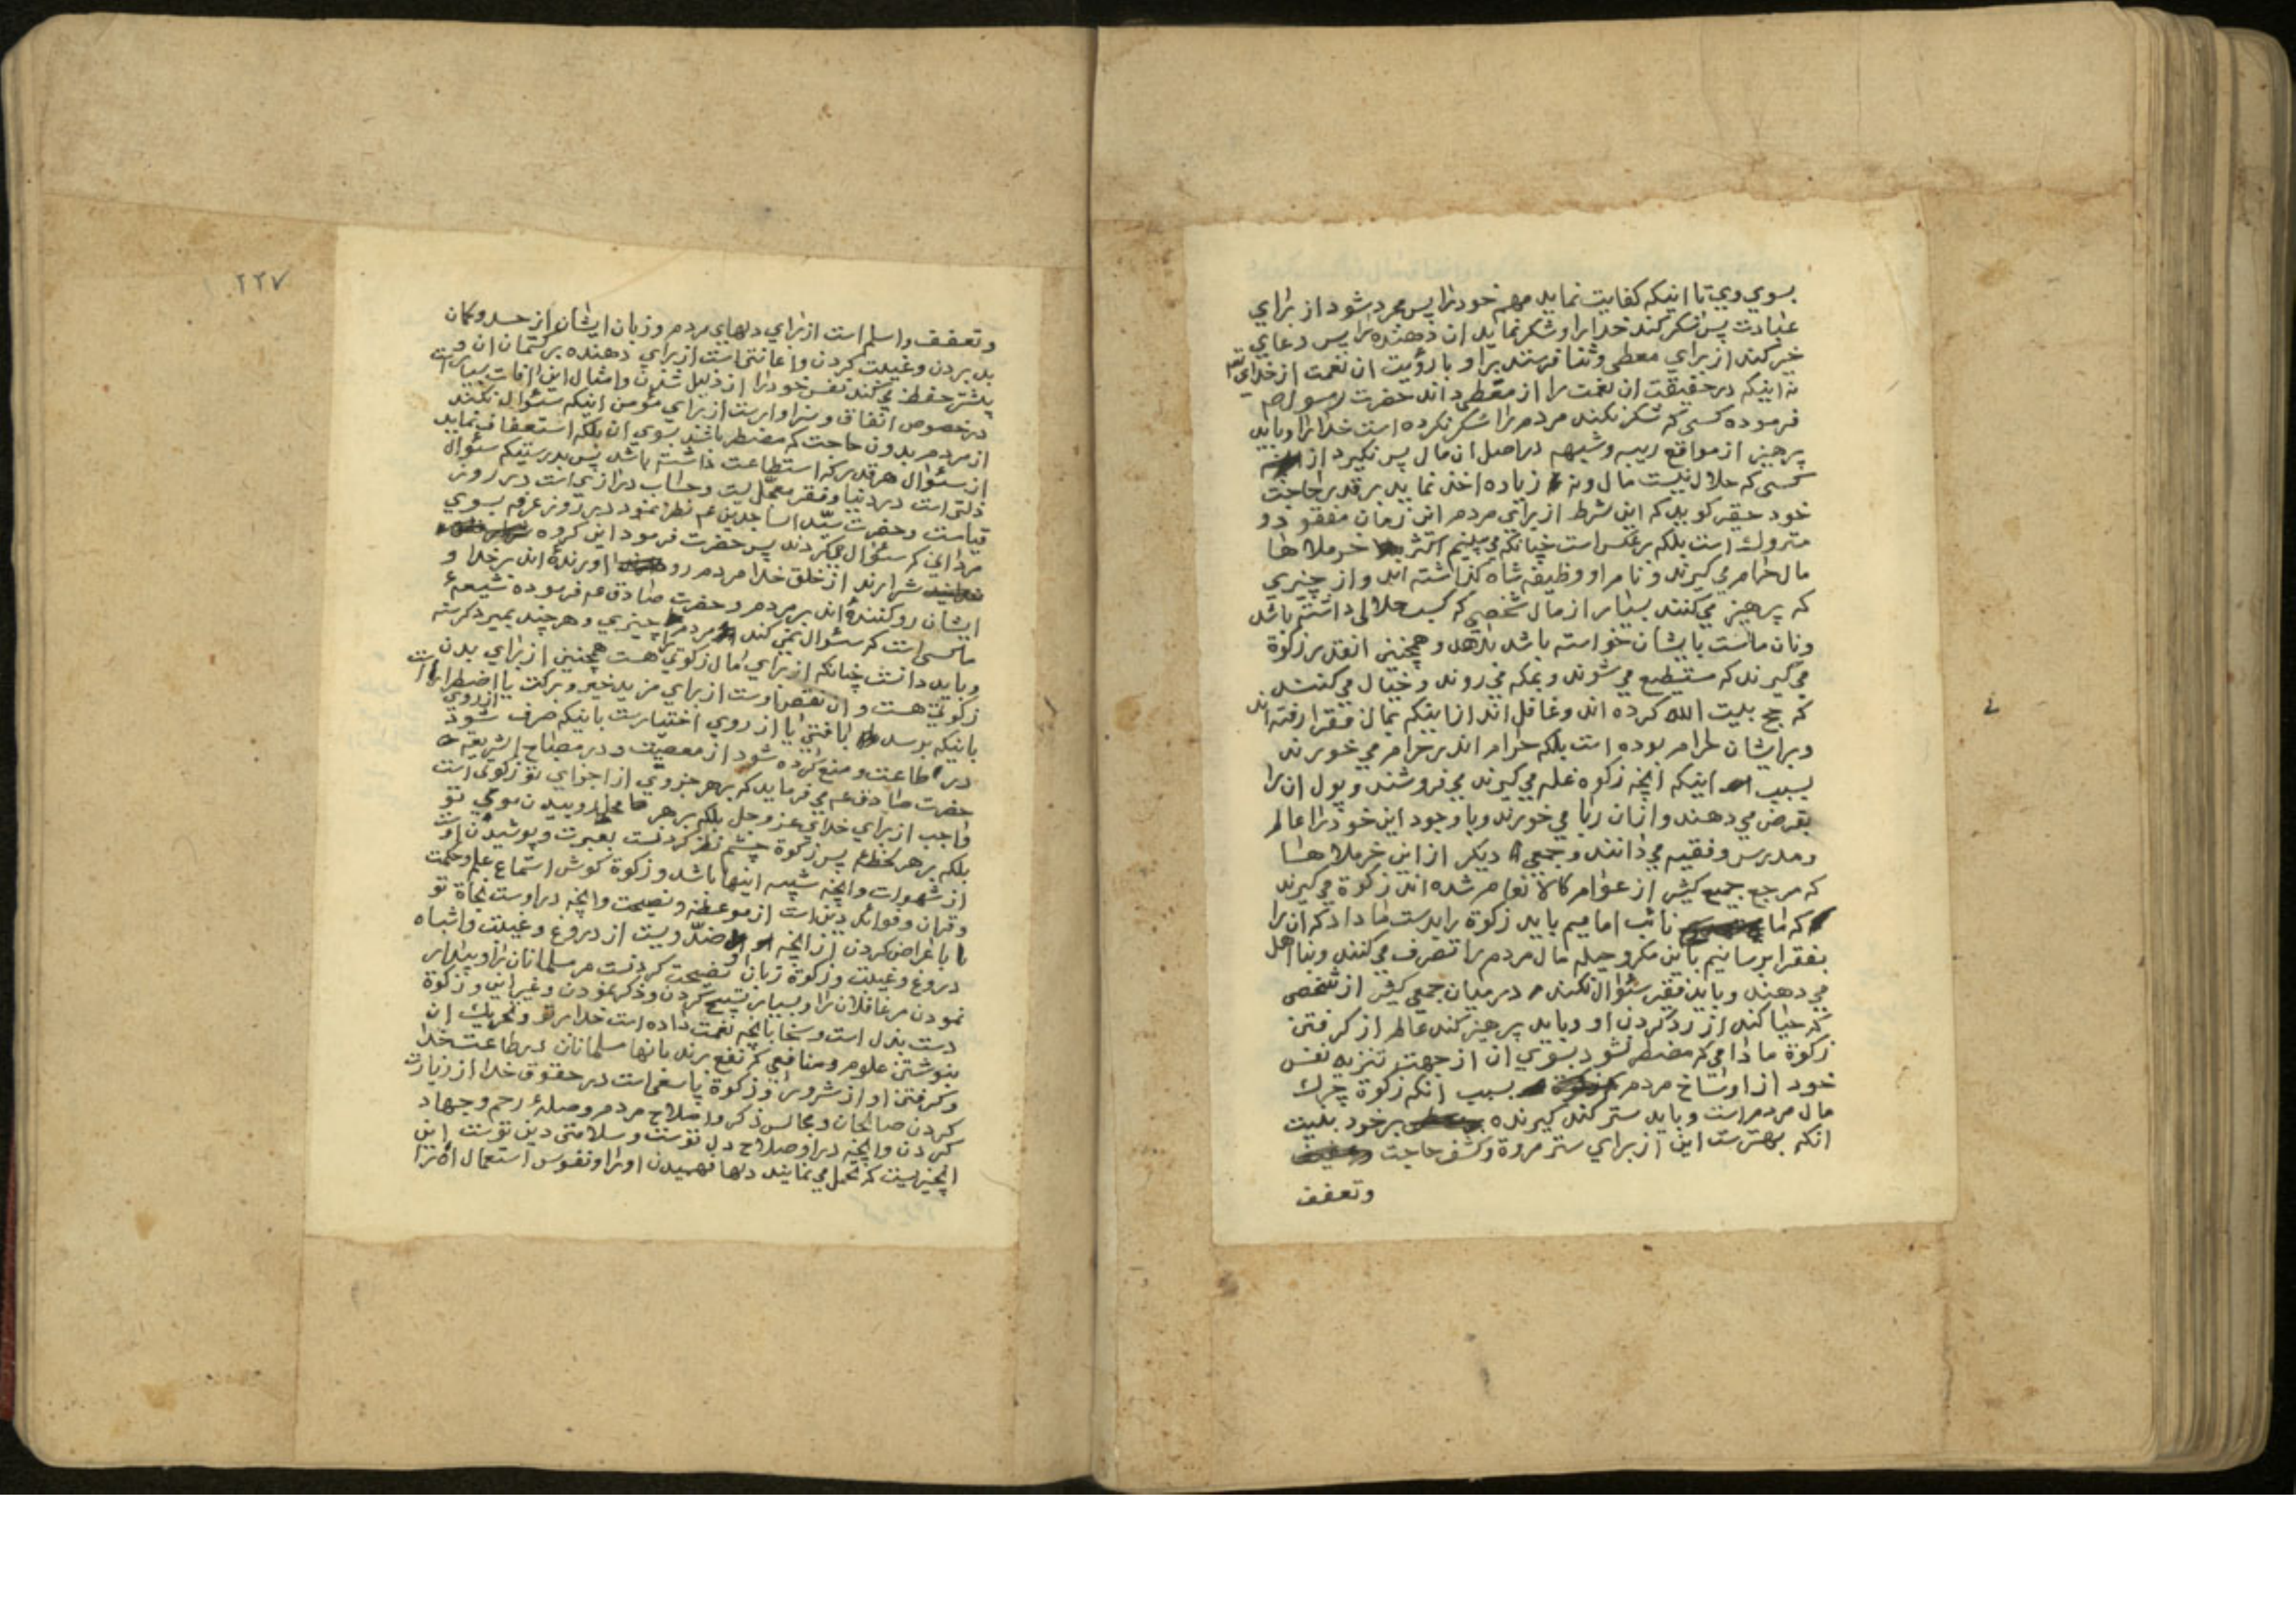 بسوي وي تا اینکه کفایت نماید مهم خود را پس مجرد شود از برای
عبادت پس شکر کند خدا را و شکر نماید ان دهنده را پس دعای
خیر کند از برای معطی و ثنا فرستد برا و با رؤیت ان نعمت از خدای تعـ
نه اینکه در حقیقت ان نعمت را از معطی داند حضرت رسول صم
فرموده کسی که شکر نکند مردم را شکر نکرده است خدا را و باید
پرهیز از مواقع ریبه و شبهه در اصل ان مال پس نگیرد از
کسی که حلال نیست مال و نه زیاده اخذ نماید بر قدر حاجت
خود حقیر کوید که این شرط از برای مردم این زمان مفقود و
متروك است بلکه بر عکس است چنانکه می بینیم اکثر خر ملاها
مال حرام می کیرند و نام او وظیفه شاه کذاشته اند و از چیزی
که پرهیز می کنند بسیار از مال شخصی که کسب حلالی داشته باشد
و نان ماست بایشان خواسته باشد بدهد و همچنین انقدر زکوة
می کیرند که مستطیع می شوند و بمکه می روند و خیال می کنند
که حج بیت الله کرده اند و غافل اند از اینکه بمال فقرا رفته اند
و بر ایشان حرام بوده است بلکه حرام اندر حرام می خورند
بسبب اینکه انچه زکوه غله می کیرند می فروشند و پول ان را
بقرض می دهند و از ان ربا می خورند و با وجود این خود را عالم
و مدرس و فقیه می دانند و جمعی دیکر از این خر ملا ها
که مرجع جمیع کثیر از عوام کالانعام شده اند زکوة می کیرند
که ما نائب امامیم باید زکوة را بدست ما داد که ان را
بفقرا برسانیم باین مکر و حیله مال مردم را تصرف می کنند و بنا اهل
می دهند و باید فقیر سئوال نکند در میان جمعی کثیر از شخصی
که حیا کند از رد کردن او و باید پرهیز کند عالم از کرفتن
زکوة مادامی که مضطر نشود بسوی ان از جهت تنزیه نفس
خود از اوساخ مردم بسبب انکه زکوة چرك
مال مردم است و باید ستر کند کیرنده بر خود بنیت
انکه بهتر ست این از برای ستر مروة و کشف حاجت
وتعفف
۲۲۷
و تعفف و اسلم است از برای دلهای مردم و زبان ایشان از حسد و کمان
بد بردن و غیبت کردن و اعانتی است از برای دهنده بر کتمان ان و
بیشتر حفظ می کند نفس خود را از ذلیل شدن و امثال این افات بسیار است
در خصوص انفاق و سزاوار ست از برای مؤمن اینکه سئوال نکند
از مردم بدون حاجت که مضطر باشد بسوی ان بلکه استعفاف نماید
از سئوال هر قدر که استطاعت داشته باشد پس بدرستیکه سئوال
ذلتی است در دنیا و فقر معجّلیست و حساب درازی است در روز
قیامت و حضرت سیّد الساجدین عم نظر نمود در روز عرفه بسوی
مردانی که سئوال میکردند پس حضرت فرمود این کروه
شرارند از خلق خدا مردم رو اورندهٔ اند بر خدا و
ایشان رو کنندهٔ اند بر مردم و حضرت صادق عم فرموده شیعهٔ
ما کسی است که سئوال نمی کند مردم را چیزی و هر چند بمیرد کرسنه
و باید دانست چنانکه از برای مال زکوتی هست همچنین از برای بدن
زکوتی هست و ان نقص اوست از برای مزید خیر و برکت یا اضطرار است
باینکه برسد یا از روی اختیارست باینکه صرف شود
در طاعت و منع کرده شود از معصیت و در مصباح الشریعه
حضرت صادق عم می فرماید که بر هر جزوی از اجزای تو زکوتی است
واجب از برای خدای عز و جل بلکه بر هر روییدن موی تو
بلکه بر هر لحظه پس زکوة چشم نظر کردنست بعبرت و پوشیدن اوست
از شهوات و انچه شبیه اینها باشد و زکوة کوش استماع علم و حکمت
و قران و فوائد دین است از موعظه و نصیحت و انچه در اوست نجاة تو
با اعراض کردن از انچه ضدّ ویست از دروغ و غیبت و اشباه
دروغ و غیبت و زکوة زبان نصیحت کردنست مر مسلمانان را و بیدار
نمودن مر غافلان را و بسیار تسبیح کردن و ذکر نمودن و غیر این و زکوة
دست بذل است و سخا بانچه نعمت داده است خدا بر تو و تحریك ان
بنوشتن علوم و منافعی که نفع برند بانها مسلمانان در طاعت خدا
و کرفتن او از شرور و زکوة پا سعی است در حقوق خدا از زیارت
کردن صالحان و مجالس ذکر و اصلاح مردم و صلهٔ رحم و جهاد
کردن و انچه در او صلاح دل توست و سلامتی دین توست این
انچیزیست که تحمل می نمایند دلها فهمیدن او را و نفوس استعمال